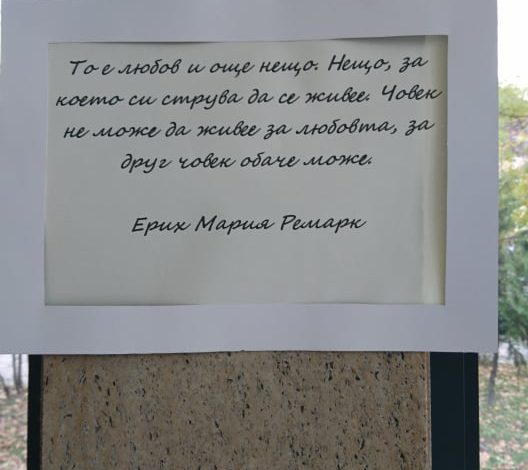 То е любов и още нещо. Нещо, за
което си струва да се живее. Човек
не може да живее за любовта, за
друг човек обаче може.
Ерих Мария Ремарк